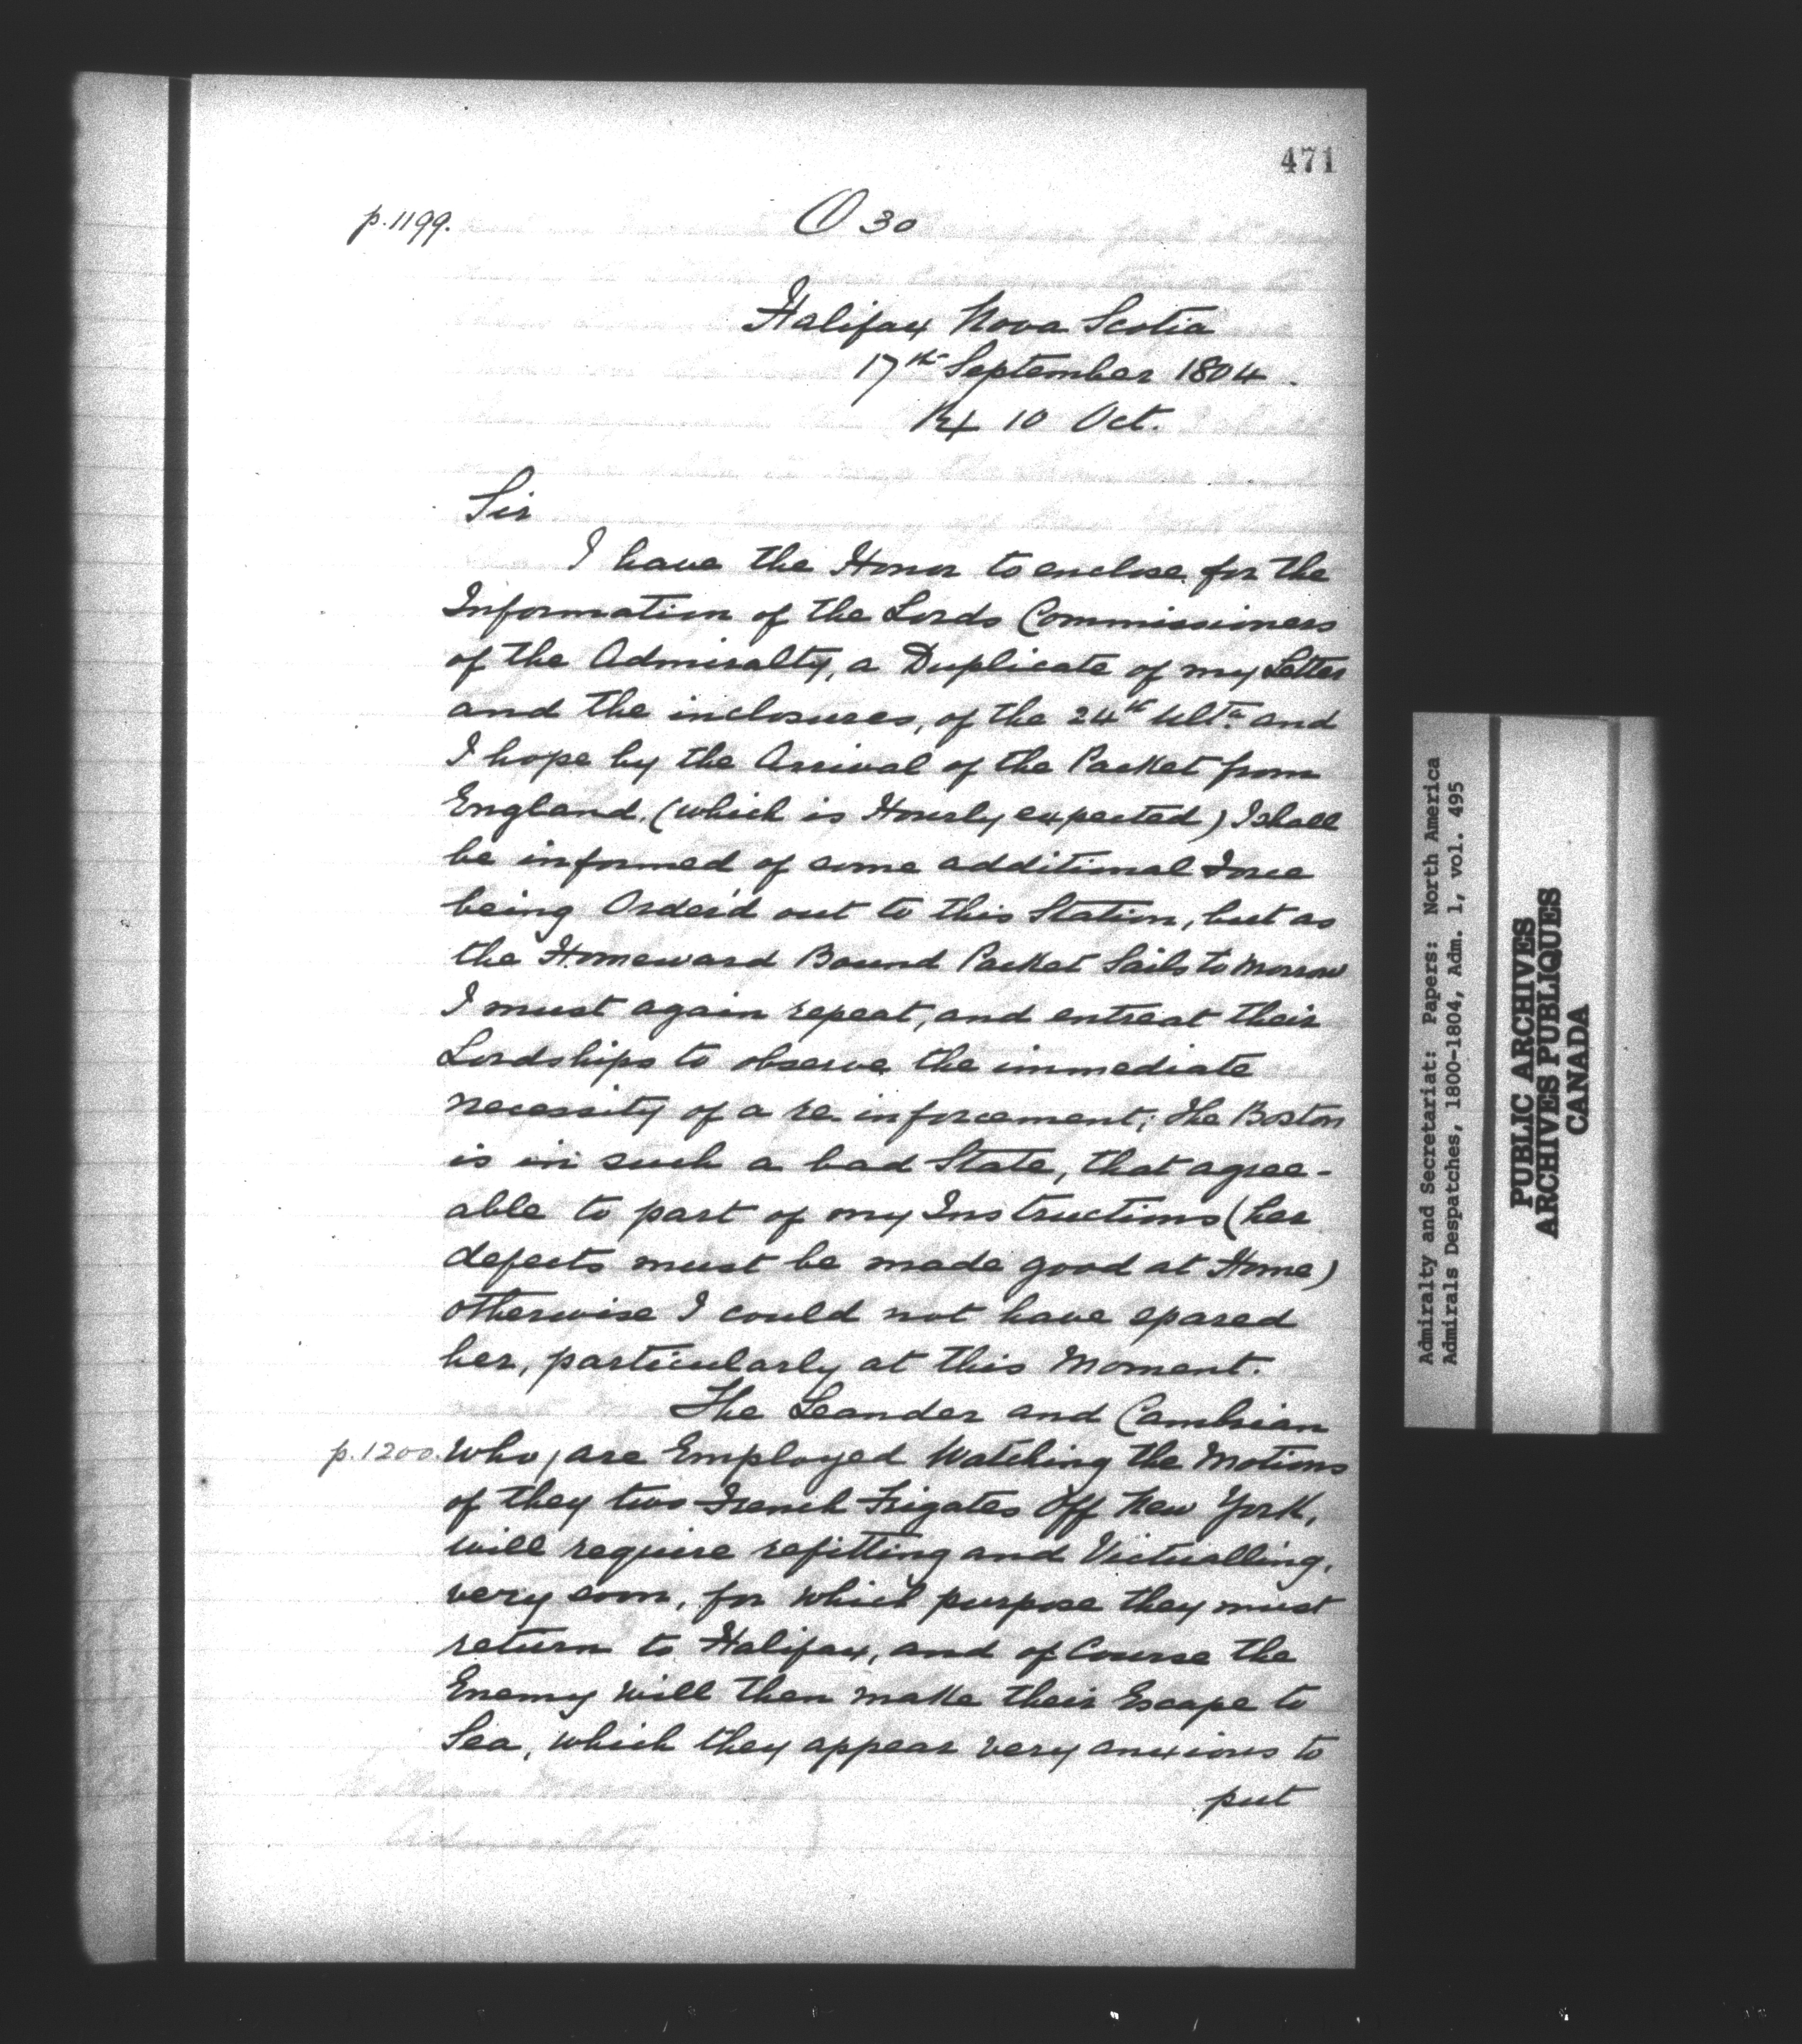 471
p. 1199.
30
Halifax Nova Scotia
17th September 1804.
Rx 10 Oct.
Sir
I have the Honor to enclose for the
Information of the Lords Commissioners
of the Admiralty, a Duplicate of my Letter
and the inclosures, of the 24th Ulto. and
I hope by the Arrival of the Packet from
England, (which is Hourly expected) I shall
be informed of some additional Force
being Order'd out to this Station, but as
the Homeward Bound Packet Sails to Morrow
I must again repeat, and entreat their
Lordships to observe the immediate
necessity of a re-inforcement; the Boston
is in such a bad State, that agree-
able to part of my Instructions (her
defects must be made good at Home)
otherwise I could not have spared
her, particularly at this Moment.
The Leander and Cambrian
p. 1200. Who, are Employed Watching the Motions
of they two French Frigates Off New York,
will require refitting and Victualling,
very soon, for which purpose they must
return to Halifax, and of Course the
Enemy will then make their Escape to
Sea, which they appear very anxious to
put
Admiralty and Secretariat: Papers: North America
Admirals Despatches, 1800-1804, Adm. 1, vol. 495
PUBLIC ARCHIVES
ARCHIVES PUBLIQUES
CANADA